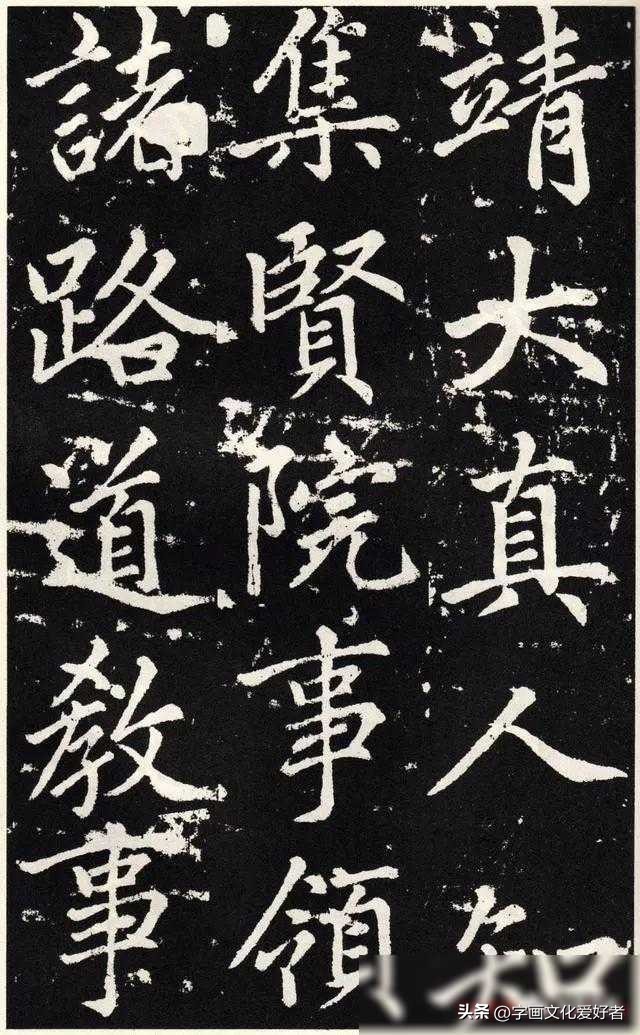 靖大真人知
集賢院事領
諸路道教事
头条 @字画文化爱好者